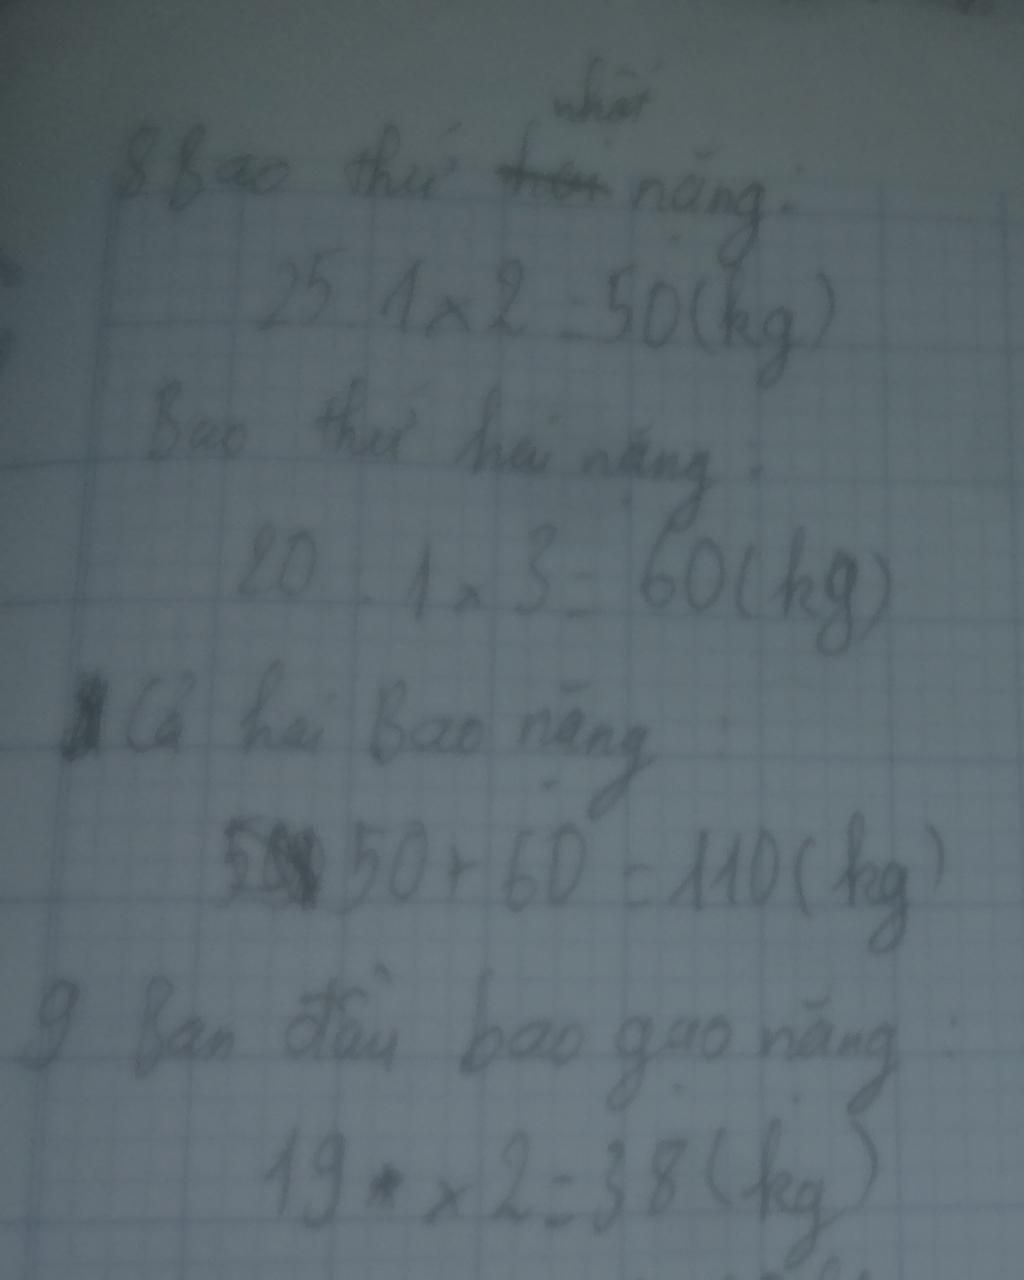 nhất
8 Bao thứ hai nặng:
25 : 1 x 2 = 50 (kg)
Bao thứ hai nặng :
20 : 1 x 3 = 60 (kg)
Cả hai Bao nặng :
50 50 + 60 = 110 (kg)
9 Ban đầu bao gạo nặng :
19 x 2 = 38 (kg)